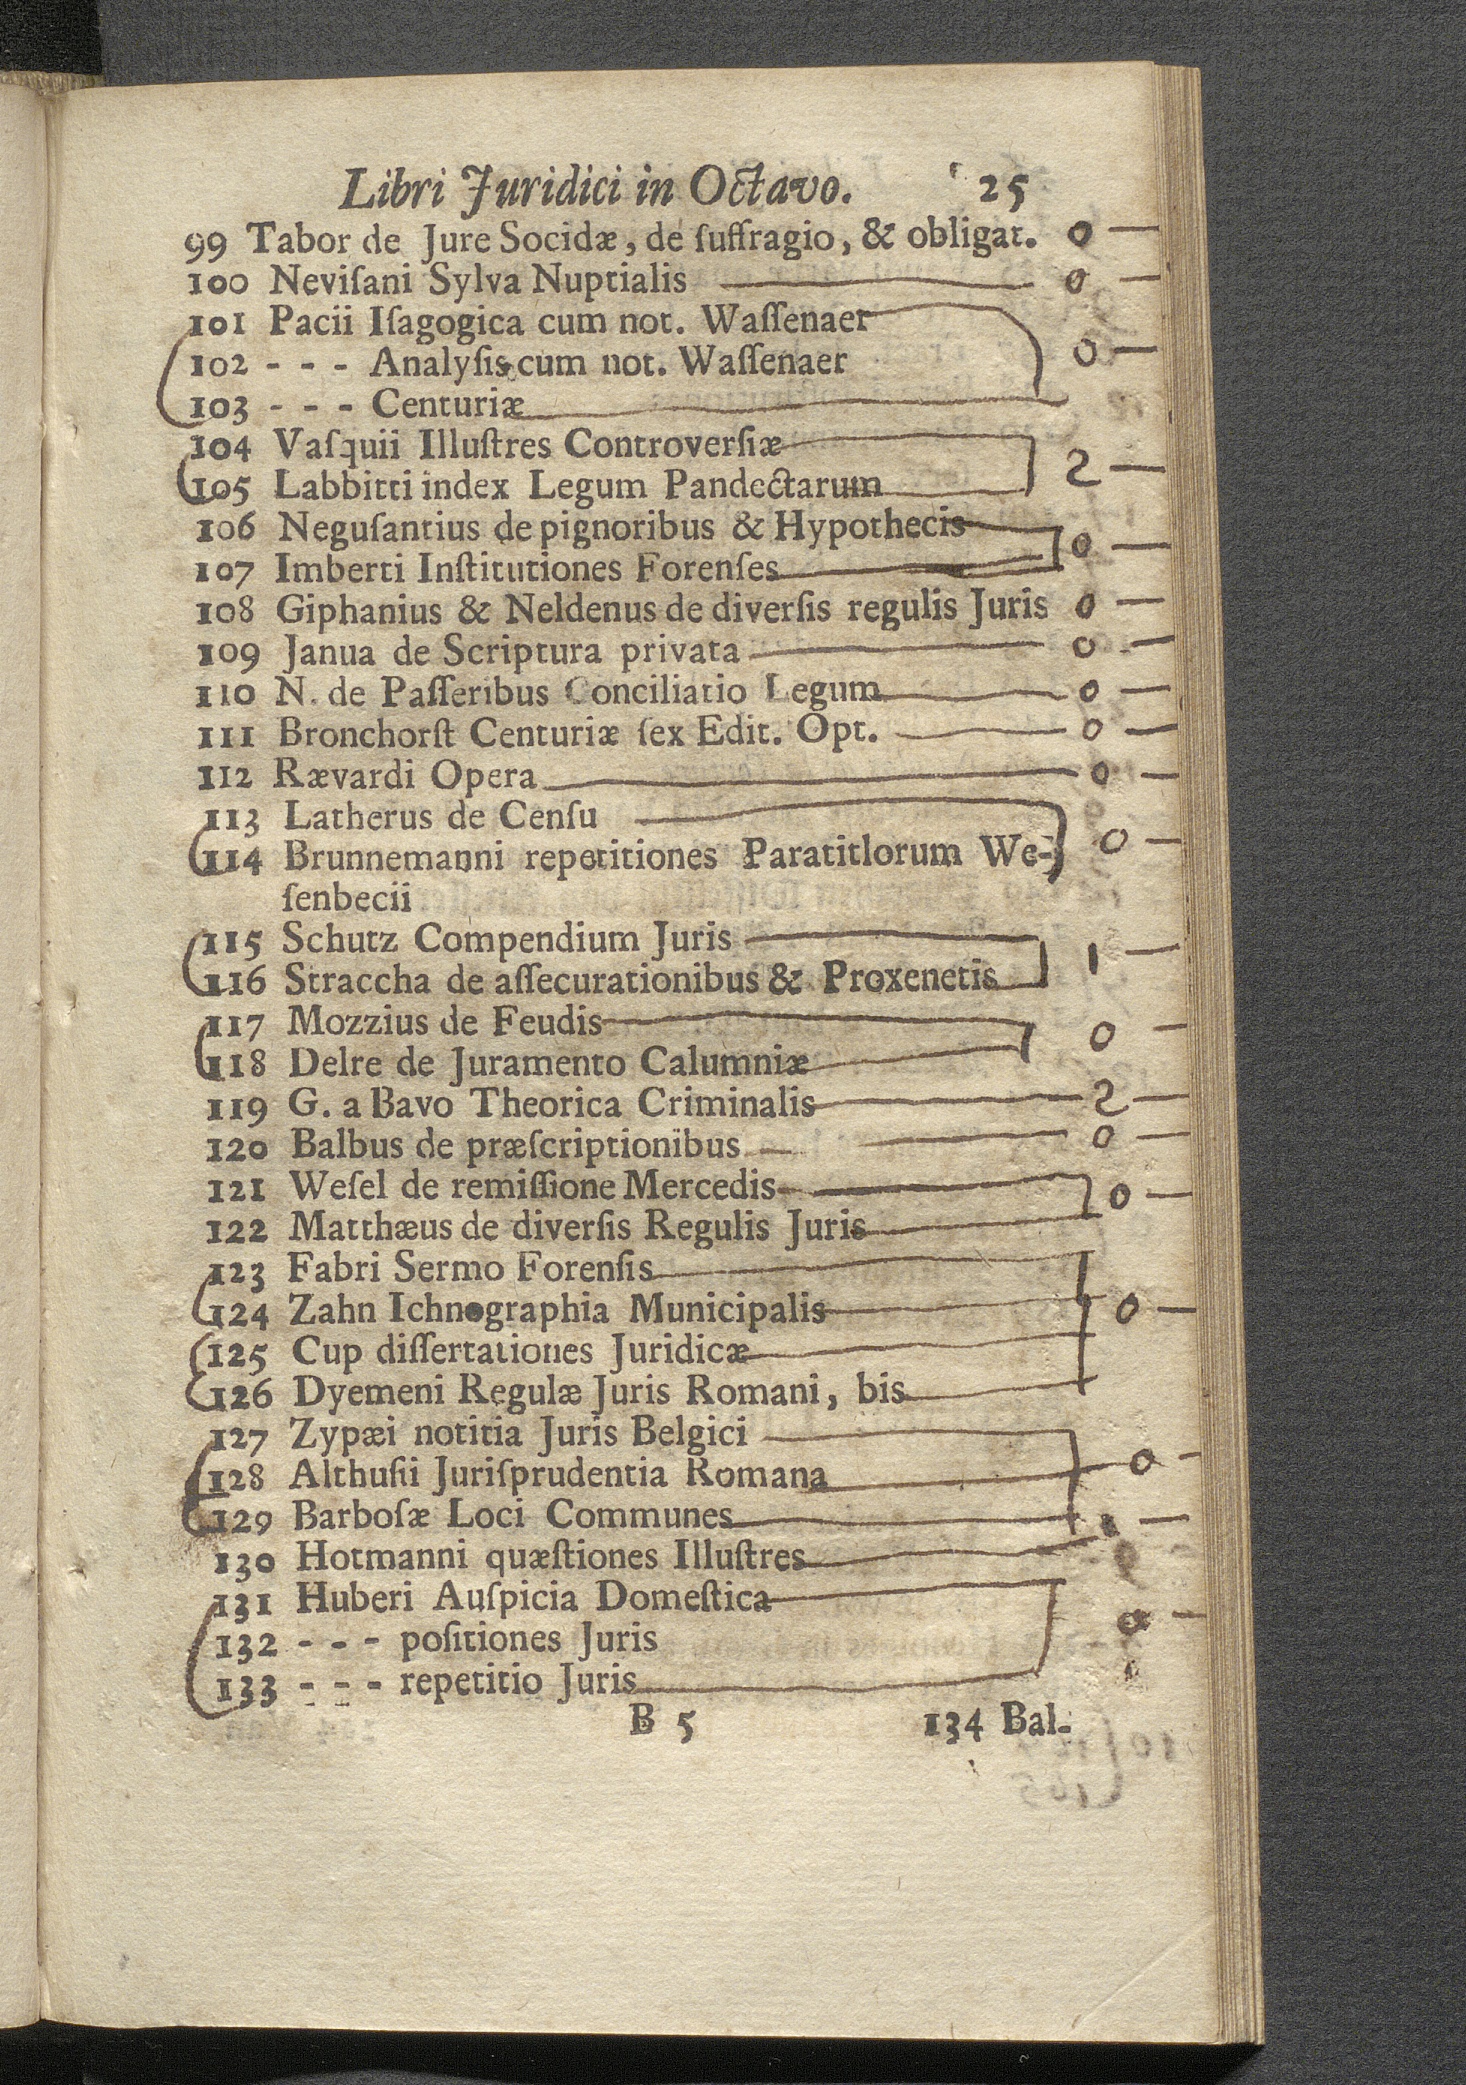 Libri Juridici in Octavo. 25
99 Tabor de Jure Socidæ, de ſuffragio, & obligat. 0 —
100 Neviſani Sylva Nuptialis — 0 —
101 Pacii Iſagogica cum not. Waſſenaer
102 - - - Analyſis cum not. Waſſenaer 0 —
103 - - - Centuriæ
104 Vaſquii Illuſtres Controverſiæ
105 Labbitti index Legum Pandectarum 2 —
106 Neguſantius de pignoribus & Hypothecis
107 Imberti Inſtitutiones Forenſes 0 —
108 Giphanius & Neldenus de diverſis regulis Juris 0 —
109 Janua de Scriptura privata — 0 —
110 N. de Paſſeribus Conciliatio Legum — 0 —
111 Bronchorſt Centuriæ ſex Edit. Opt. — 0 —
112 Rævardi Opera — 0 —
113 Latherus de Cenſu
114 Brunnemanni repetitiones Paratitlorum We- 0 —
ſenbecii
115 Schutz Compendium Juris
116 Straccha de aſſecurationibus & Proxenetis 1 —
117 Mozzius de Feudis
118 Delre de Juramento Calumniæ 0 —
119 G. a Bavo Theorica Criminalis — 2 —
120 Balbus de præſcriptionibus — 0 —
121 Weſel de remiſſione Mercedis 0 —
122 Matthæus de diverſis Regulis Juris
123 Fabri Sermo Forenſis
124 Zahn Ichnographia Municipalis 0 —
125 Cup diſſertationes Juridicæ
126 Dyemeni Regulæ Juris Romani, bis
127 Zypæi notitia Juris Belgici
128 Althuſii Juriſprudentia Romana 0 -
129 Barboſæ Loci Communes
130 Hotmanni quæſtiones Illuſtres
131 Huberi Auſpicia Domeſtica
132 - - - poſitiones Juris
133 - - - repetitio Juris
B 5 134 Bal-